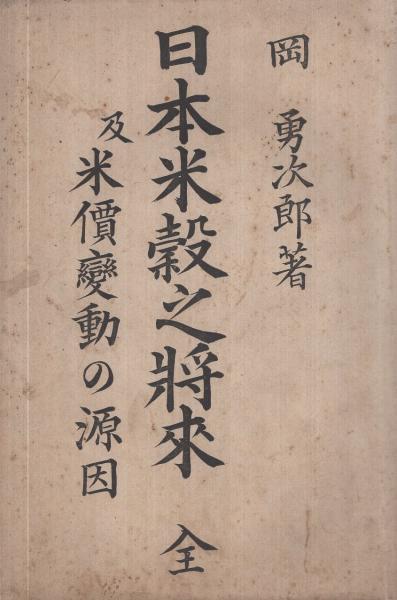 岡 勇次郎著
日本米穀之將來 全
及米價變動の源因